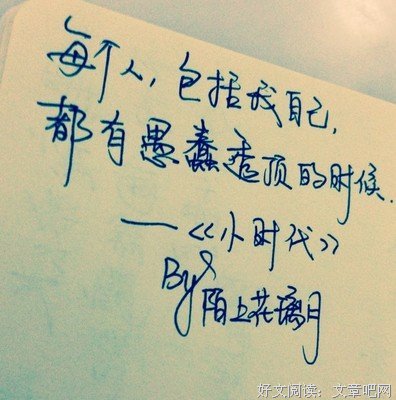 每个人，包括我自己，
都有愚蠢透顶的时候.
——《小时代》
By 陌上花璃月
好文阅读：文章吧网